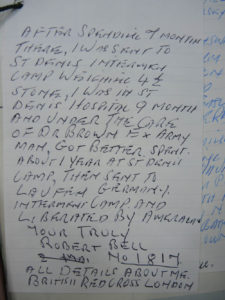 AFTER SPENDING 9 MONTH
THERE, I WAS SENT TO
ST DENIS INTERMEN
CAMP WEIGHING 4½
STONE, I WAS IN ST
DENIS HOSPITAL 9 MONTH
AND UNDER THE CARE
OF DR BROWN EX ARMY
MAN, GOT BETTER SPENT
ABOUT 1 YEAR AT ST DENIS
CAMP, THEN SENT TO
LAUFEN GERMANY.
INTERMENT CAMP AND
LIBERATED BY AMERICAN
YOUR TRULY
ROBERT BELL
No 1817
ALL DETAILS ABOUT ME.
BRITISH RED CROSS LONDON